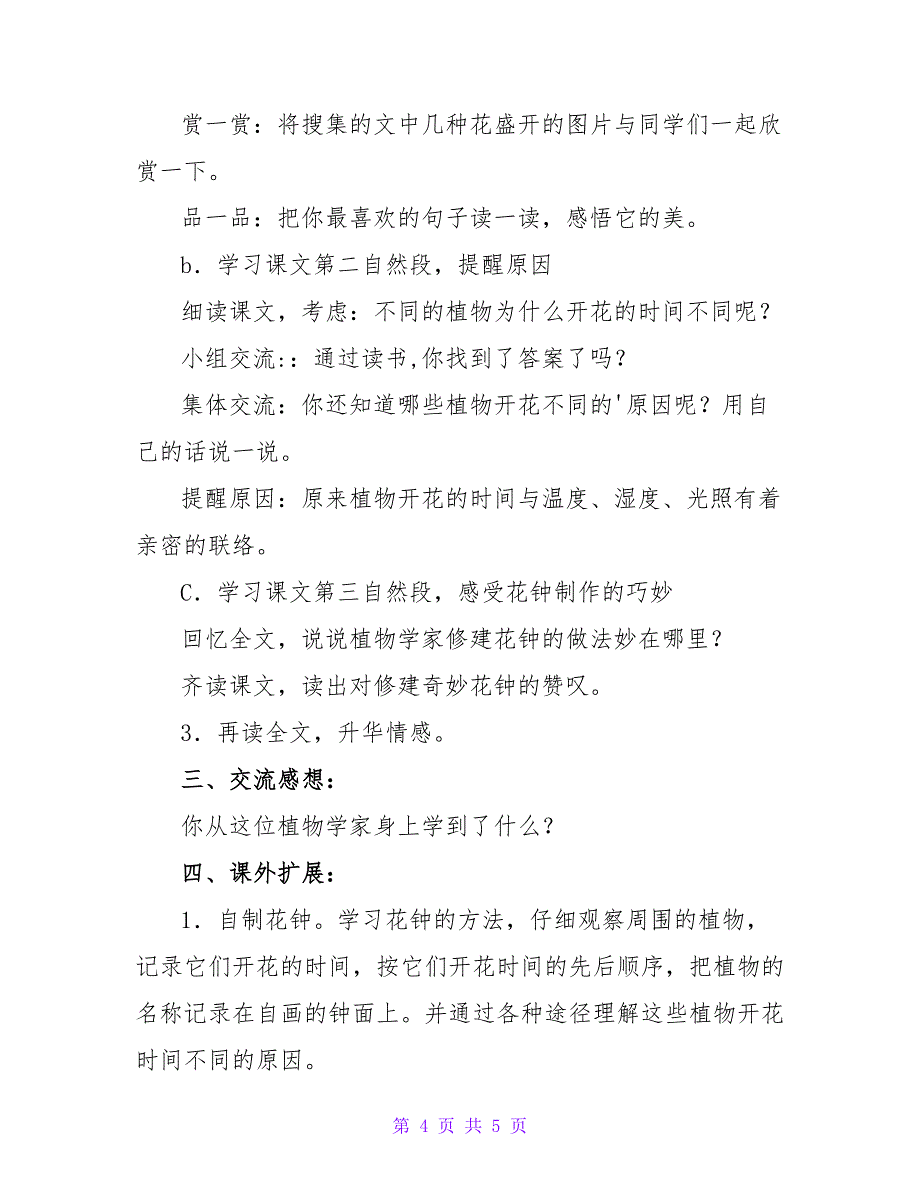 赏一赏：将搜集的文中几种花盛开的图片与同学们一起欣
赏一下。
品一品：把你最喜欢的句子读一读，感悟它的美。
b．学习课文第二自然段，提醒原因
细读课文，考虑：不同的植物为什么开花的时间不同呢？
小组交流:：通过读书,你找到了答案了吗？
集体交流：你还知道哪些植物开花不同的'原因呢？用自
己的话说一说。
提醒原因：原来植物开花的时间与温度、湿度、光照有着
亲密的联络。
C．学习课文第三自然段，感受花钟制作的巧妙
回忆全文，说说植物学家修建花钟的做法妙在哪里？
齐读课文，读出对修建奇妙花钟的赞叹。
3．再读全文，升华情感。
三、交流感想：
你从这位植物学家身上学到了什么？
四、课外扩展：
1．自制花钟。学习花钟的方法，仔细观察周围的植物，
记录它们开花的时间，按它们开花时间的先后顺序，把植物的
名称记录在自画的钟面上。并通过各种途径理解这些植物开花
时间不同的原因。
第 4 页 共 5 页